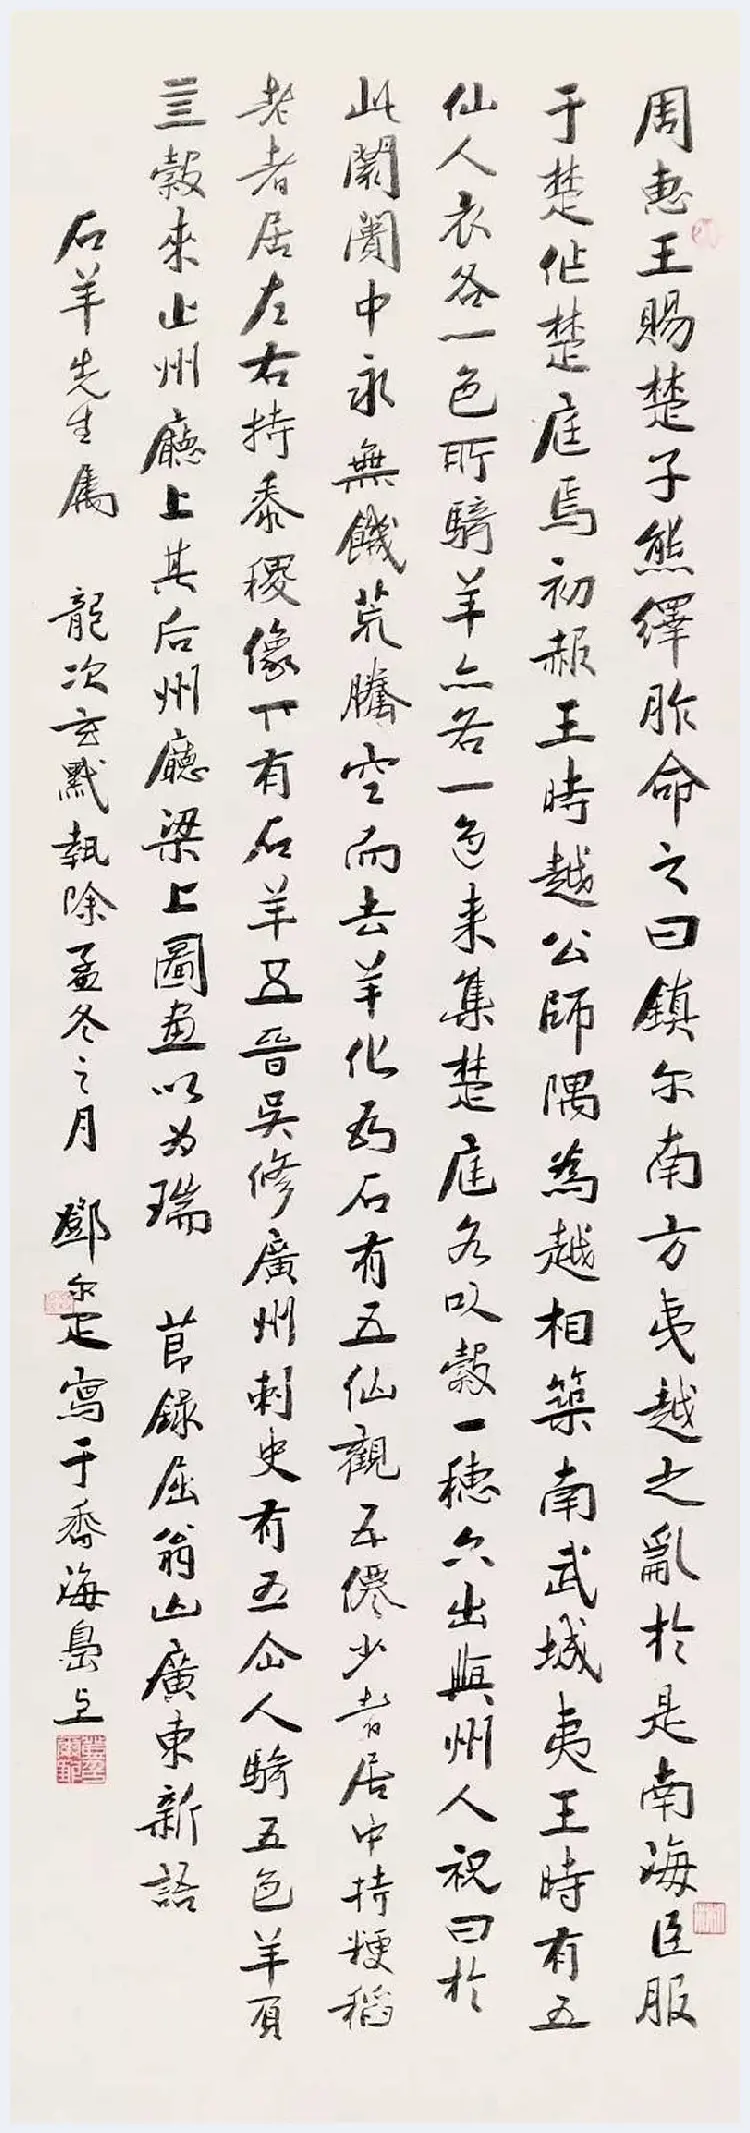 周惠王賜楚子熊繹胙命之曰鎮尔南方夷越之亂於是南海臣服
于楚作楚庭焉初赧王時越公師隅為越相築南武城夷王時有五
仙人衣各一色所騎羊亦各一色来集楚庭各以穀一穗六出與州人祝曰於
此闤闠中永無饑荒騰空而去羊化為石有五仙觀五僊少者居中持粳稻
老者居左右持黍稷像下有石羊五晉吳修廣州刺史有五仚人騎五色羊負
五穀來止州廳上其后州廳梁上圖畫以为瑞 节録屈翁山廣東新語
石羊先生属 龍次玄黓執除孟冬之月 鄧尔疋寫于香海島上